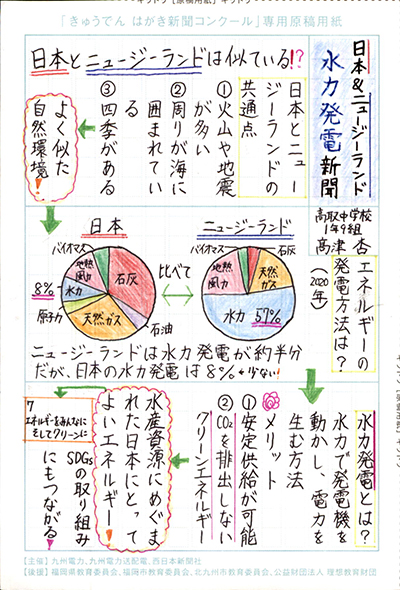 「きゅうでん はがき新聞コンクール」専用原稿用紙
日本&ニュージーランド
水力発電新聞
高取中学校
1年9組
高津 杏
日本とニュージーランドは似ている!?
日本とニュー
ジーランドの
共通点
①火山や地震
が多い
②周りが海に
囲まれてい
る
③四季がある
よく似た
自然環境!
エネルギーの
発電方法は?
(2020年)
日本
バイオマス
地熱
風力
8%
水力
原子力
天然ガス
石油
石炭
比べて
ニュージーランド
バイオマス
石炭
地熱
風力
天然
ガス
水力
57%
ニュージーランドは水力発電が約半分
だが、日本の水力発電は8%←少ない!
水力発電とは?
水力で発電機を
動かし、電力を
生む方法
メリット
①安定供給が可能
②CO2を排出しない
クリーンエネルギー
水産資源にめぐま
れた日本にとって
よいエネルギー!
7
エネルギーをみんなに
そしてクリーンに
SDGsの取り組み
にもつながる!
【主催】九州電力、九州電力送配電、西日本新聞社
【後援】福岡県教育委員会、福岡市教育委員会、北九州市教育委員会、公益財団法人 理想教育財団